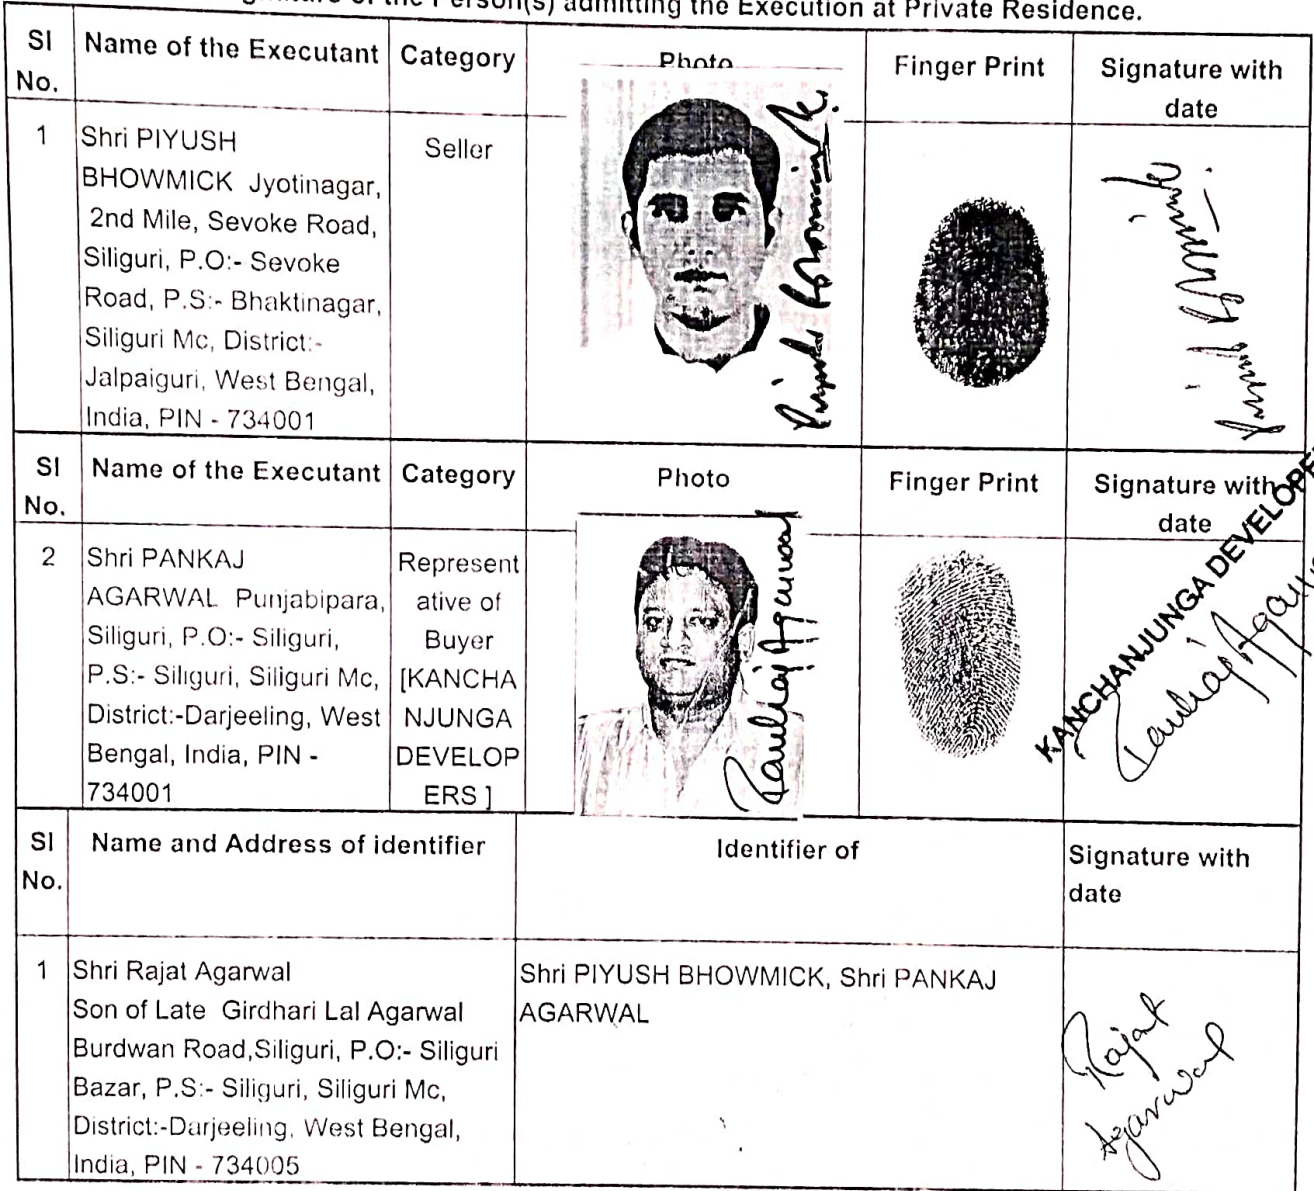 the Person(s) admitting the Execution at Private Residence.
Sl No.
Name of the Executant
Category
Photo
Finger Print
Signature with date
1
Shri PIYUSH
BHOWMICK Jyotinagar,
2nd Mile, Sevoke Road,
Siliguri, P.O:- Sevoke
Road, P.S:- Bhaktinagar,
Siliguri Mc, District:-
Jalpaiguri, West Bengal,
India, PIN - 734001
Seller
Piyush Bhowmick
Piyush Bhowmick
Sl No.
Name of the Executant
Category
Photo
Finger Print
Signature with date
2
Shri PANKAJ
AGARWAL Punjabipara,
Siliguri, P.O:- Siliguri,
P.S:- Siliguri, Siliguri Mc,
District:-Darjeeling, West
Bengal, India, PIN -
734001
Represent
ative of
Buyer
[KANCHA
NJUNGA
DEVELOP
ERS ]
Pankaj Agarwal
KANCHANJUNGA DEVELOPE
Pankaj Agarw
Sl No.
Name and Address of identifier
Identifier of
Signature with
date
1
Shri Rajat Agarwal
Son of Late Girdhari Lal Agarwal
Burdwan Road,Siliguri, P.O:- Siliguri
Bazar, P.S:- Siliguri, Siliguri Mc,
District:-Darjeeling, West Bengal,
India, PIN - 734005
Shri PIYUSH BHOWMICK, Shri PANKAJ
AGARWAL
Rajat
Agarwal